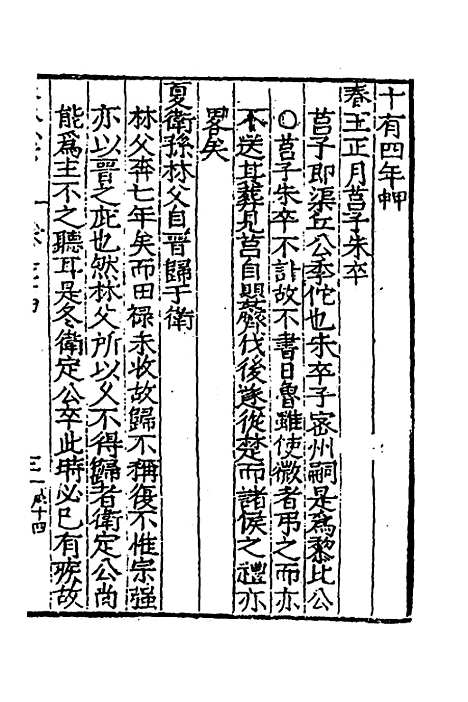 十有四年
春王正月莒子朱卒
莒子即渠丘公季佗也朱卒子宻州嗣是爲黎比公
○莒子朱卒不訃故不書日魯雖使微者弔之而亦
不送其葬見莒自盟蔑伐後遂從楚而諸侯之禮亦
畧矣
夏衛孫林父自晉歸于衛
林父奔七年矣而田禄未收故歸不稱復不惟宗强
亦以晉之庇也然林父所以父不得歸者衛定公尚
能爲主不之聽耳是冬衛定公卒此時必已有疾故